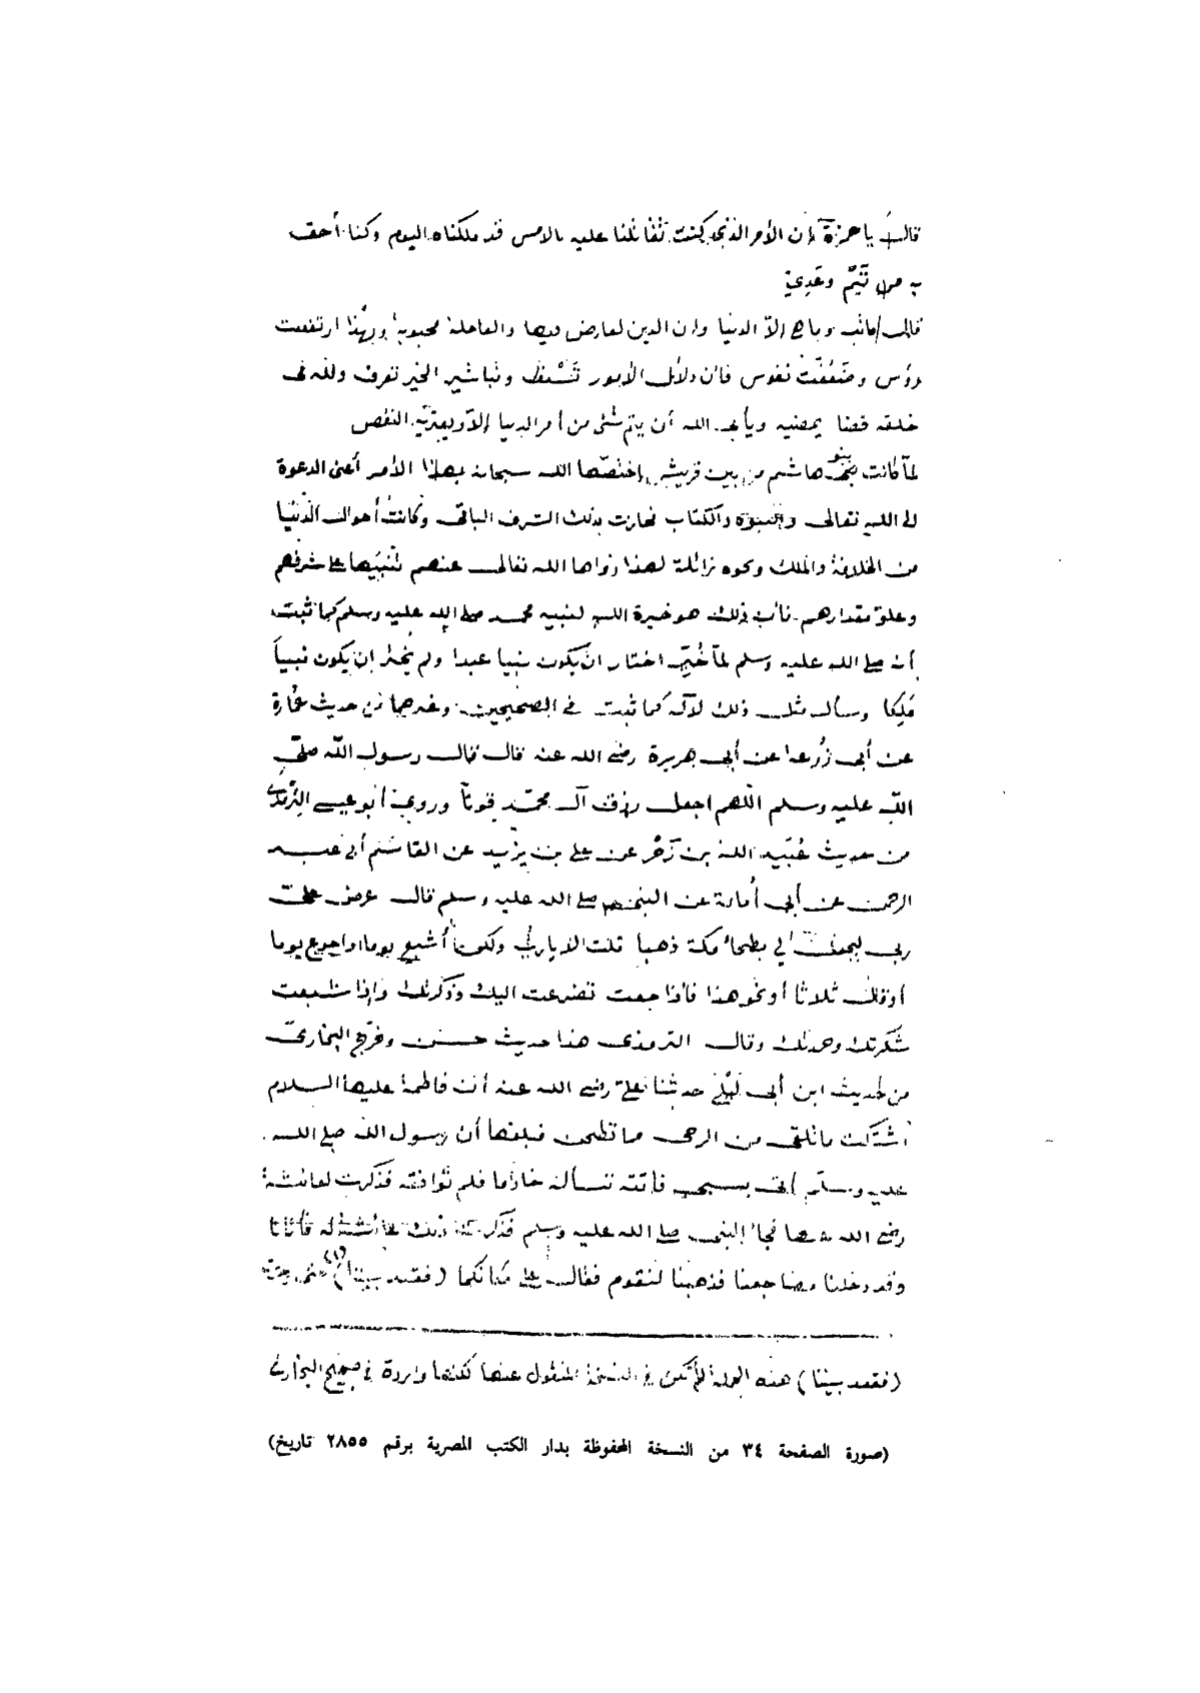 قال يا حمزة إن الأمر الذي كنت تقاتلنا عليه بالامس قد ملكناه اليوم وكنا أحق
به من تَيْم وعَدِيّ
وما هو إلاّ الدنيا وان الدين لعارض فيها والعاجلة محبوبة وبهٰذا ارتفعت
رؤس وضَعُفَت نفوس فان دلائل الأمور تشتبه وتباشير الخير تعرف ولله في
خلقه قضا يمضيه ويأبى الله أن يتم شئ من أمر الدنيا إلاّ ويعتريه النقص
لمآ كانت بنو هاشم من بين قريش إختصّها الله سبحانه بهذا الأمر أعنى الدعوة
الى الله تعالى والنبوة والكتاب فحازت بذلك الشرف الباقى وكانت أحوال الدُنْيا
من الخلافة والملك ونحوه زائلة لهذا زواها الله تعالى عنهم تنبيهاً على شرفهم
وعلوّ مقدارهم فان ذلك هو خيرة الله لنبيه محمد صلى الله عليه وسلم كما ثبت
أنه صلى الله عليه وسلم لمآ خُيِّر اختار ان يكون نبيا عبدا ولم يختر إن يكون نبيـاً
مَلِكا وسأل مثل ذلك لآله كما ثبت في الصحيحين وغيرهما من حديث عُمَارة
عن أبى زُرعة عن أبى هريرة رضى الله عنه قال قال رسول الله صلّى
اللّه عليه وسلم اللّهم اجعل رزق آل محمّد قوتاً وروى أبو عيسى التِّرْمذى
من حديث عُبَيد الله بن زَحْر عن على بن يزيد عن القاسم أبى عبد
الرحمن عن أبى أُمامة عن النبى صلى الله عليه وسلم قال عرض علىّ
ربى ليجعل لي بطحاء مكة ذهبا قلت لا يارب ولكن أشبع يوما واجوع يوما
أوقال ثلاثا أو نحو هذا فاذا جعت تضرعت اليك وذكرتك وإذا شبعت
شكرتك وحمدتك وقال الترمذى هذا حديث حسن وخرّج البخارىّ
من حديث ابن أبى لَيْلَى حدثنا علىّ رضى الله عنه أن فاطمة عليها السلام
أشتكت ما تلقى من الرحى مما تطحن فبلغها أن رسول الله صلى الله
عليه وسلّم أتى بسبي فأتته تسأله خادما فلم تُوافقه فذكرت لعائشة
رضى الله عنها فجاء النبى صلى الله عليه وسلم فذكرت ذلك عائشة له فأتانا
وقد دخلنا مضاجعنا فذهبنا لنقوم فقال على مكانكما (فقعد بيننا)(١) حتى وجدت
(فقعد بيننا) هذه الجملة لم تكن في النسخة المنقول عنها لكنها واردة في صحيح البخارى
(صورة الصفحة ٣٤ من النسخة المحفوظة بدار الكتب المصرية برقم ٢٨٥٥ تاريخ)